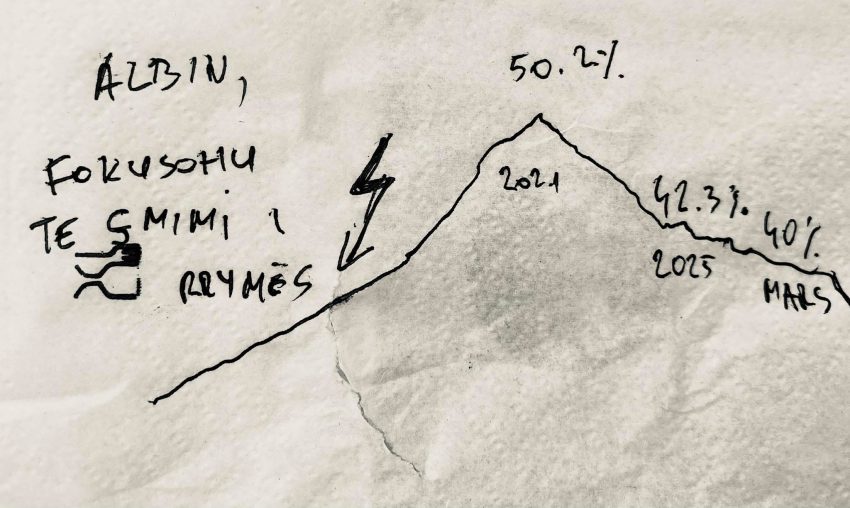 ALBIN,
FOKUSOHU
TE ÇMIMI I
RRYMËS
50.2%.
2021
42.3%.
2025
40%
MARS